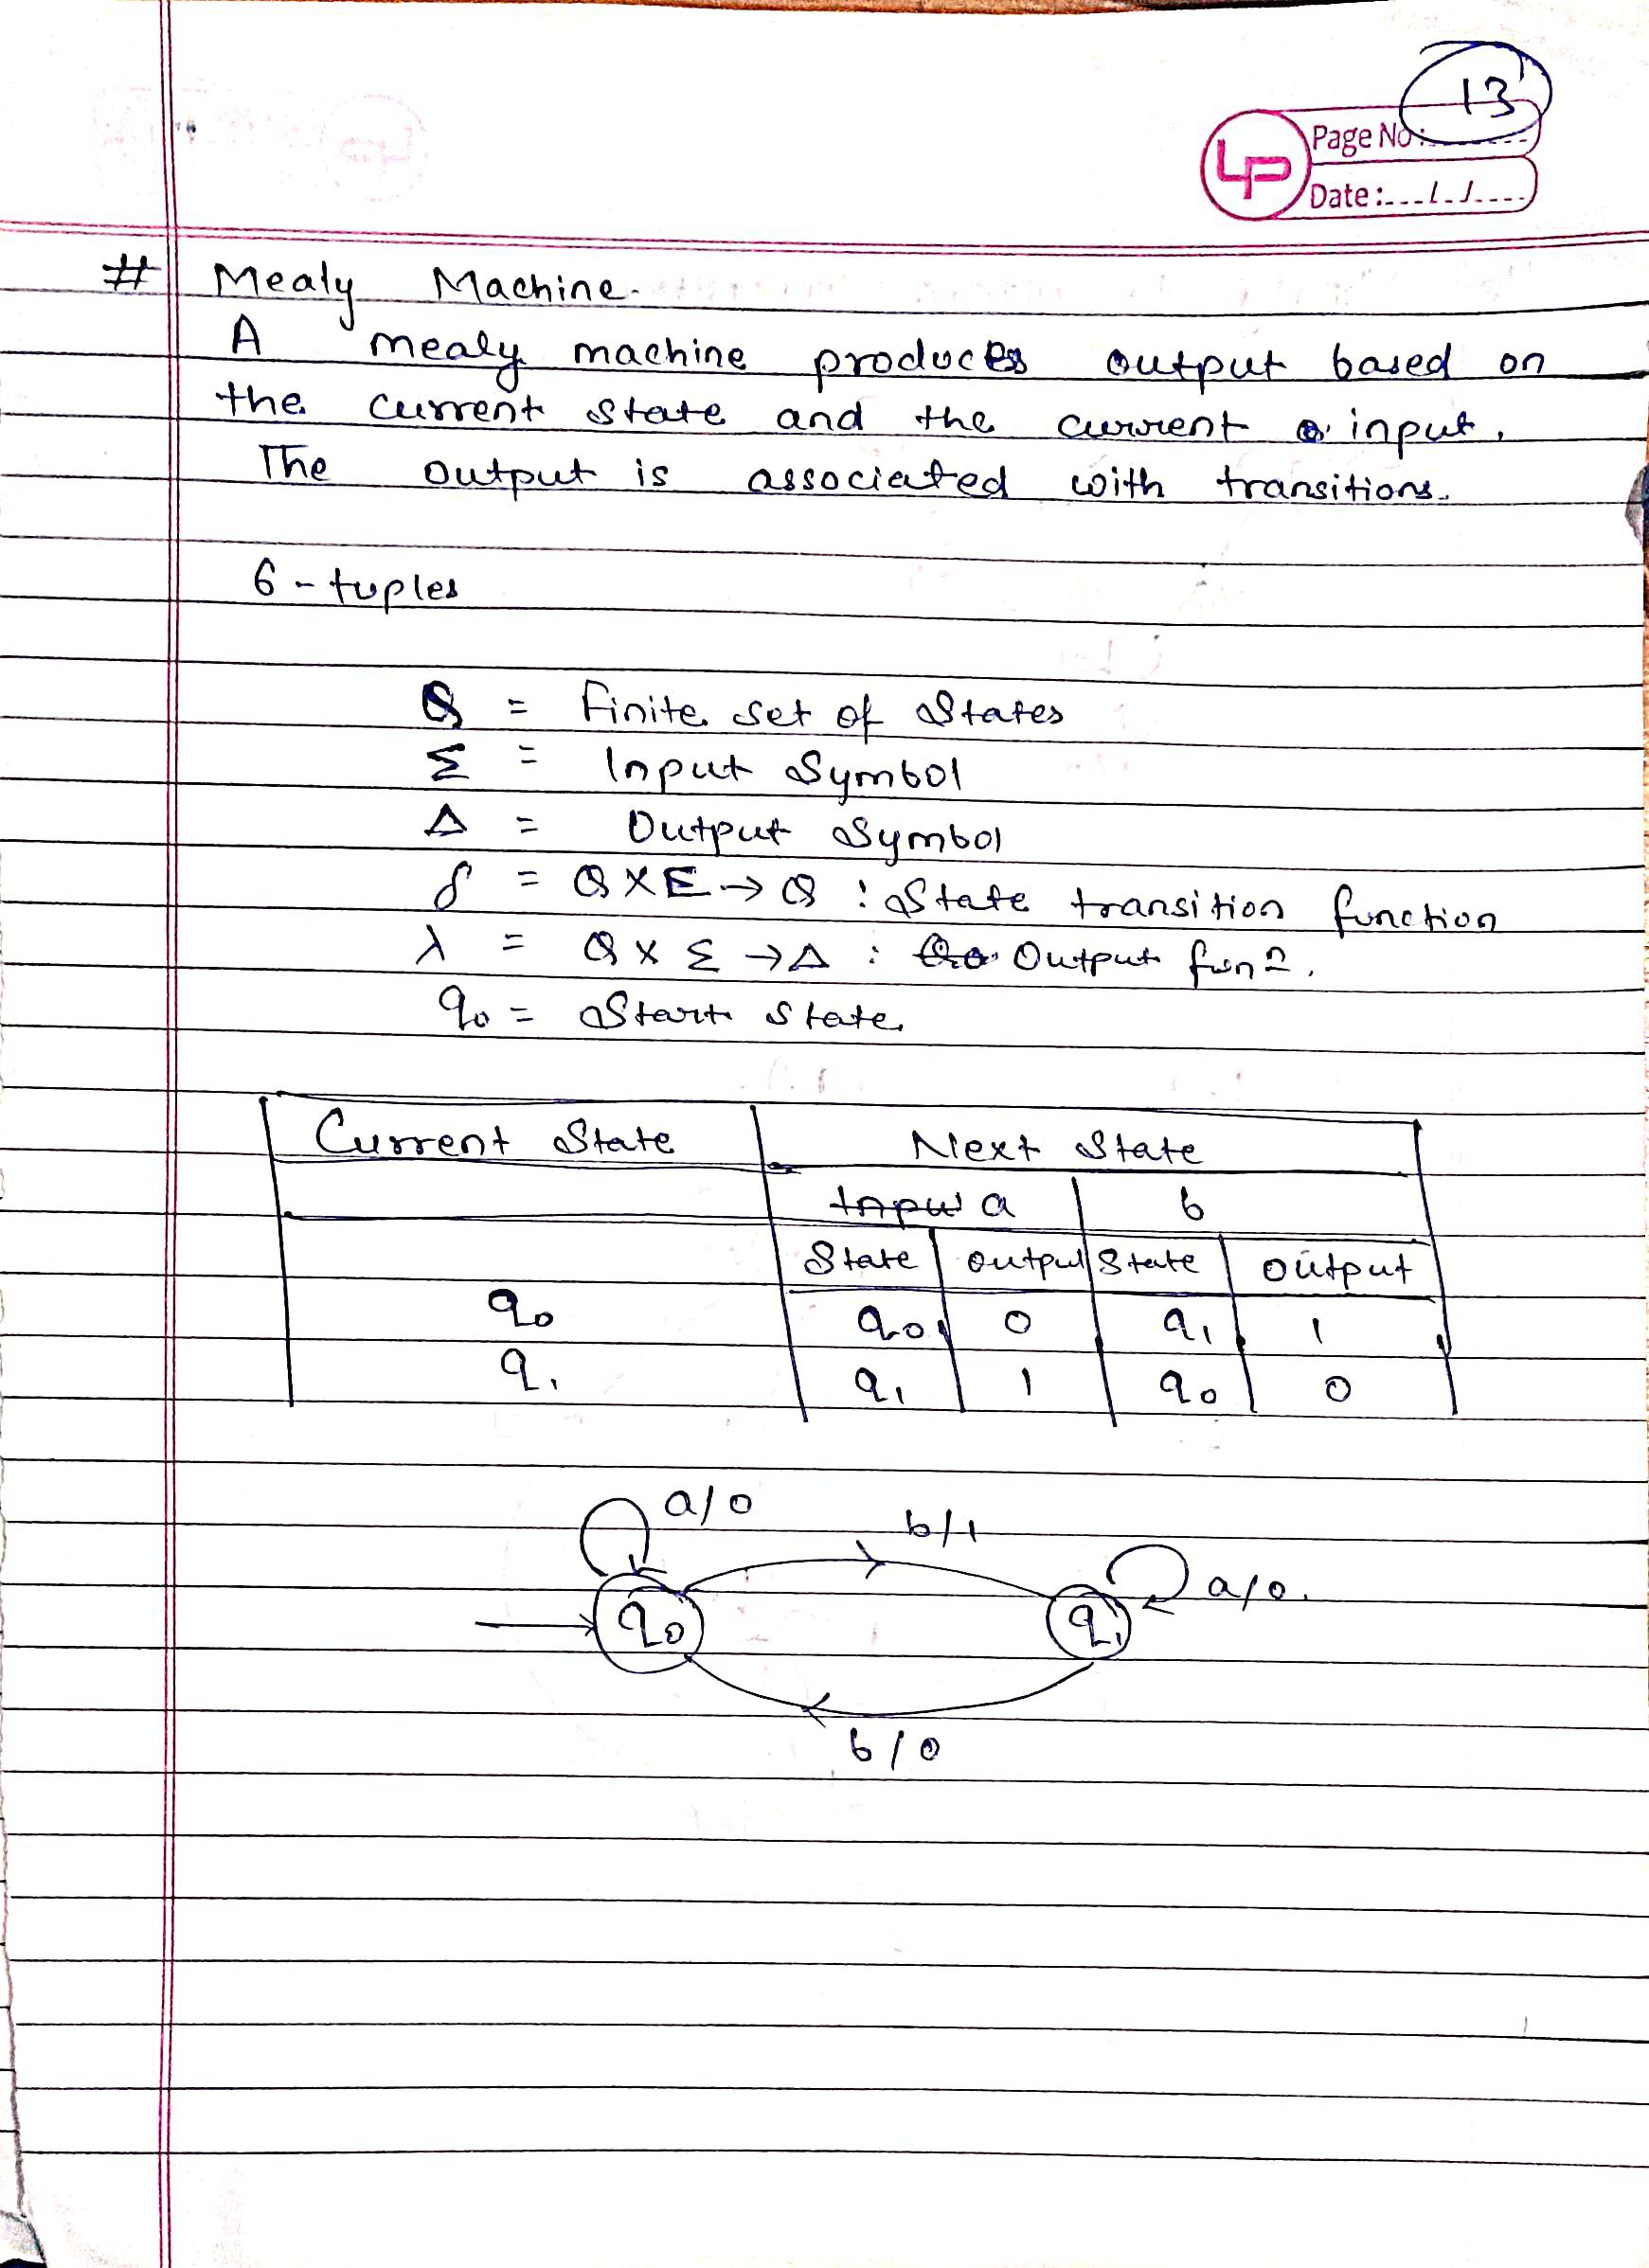 13
LP
Page No:
Date: / /
# Mealy Machine.
A mealy machine produces output based on
the current state and the current input.
The output is associated with transitions.
6-tuples
Q = Finite set of States
Σ = Input Symbol
Δ = Output Symbol
δ = Q X Σ → Q : State transition function
λ = Q X Σ → Δ : Output funn.
q0 = Start state
Current State Next State
a b
State output State output
q0 q0 0 q1 1
q1 q1 1 q0 0
a/0
b/1
a/0.
q0 q1
b/0